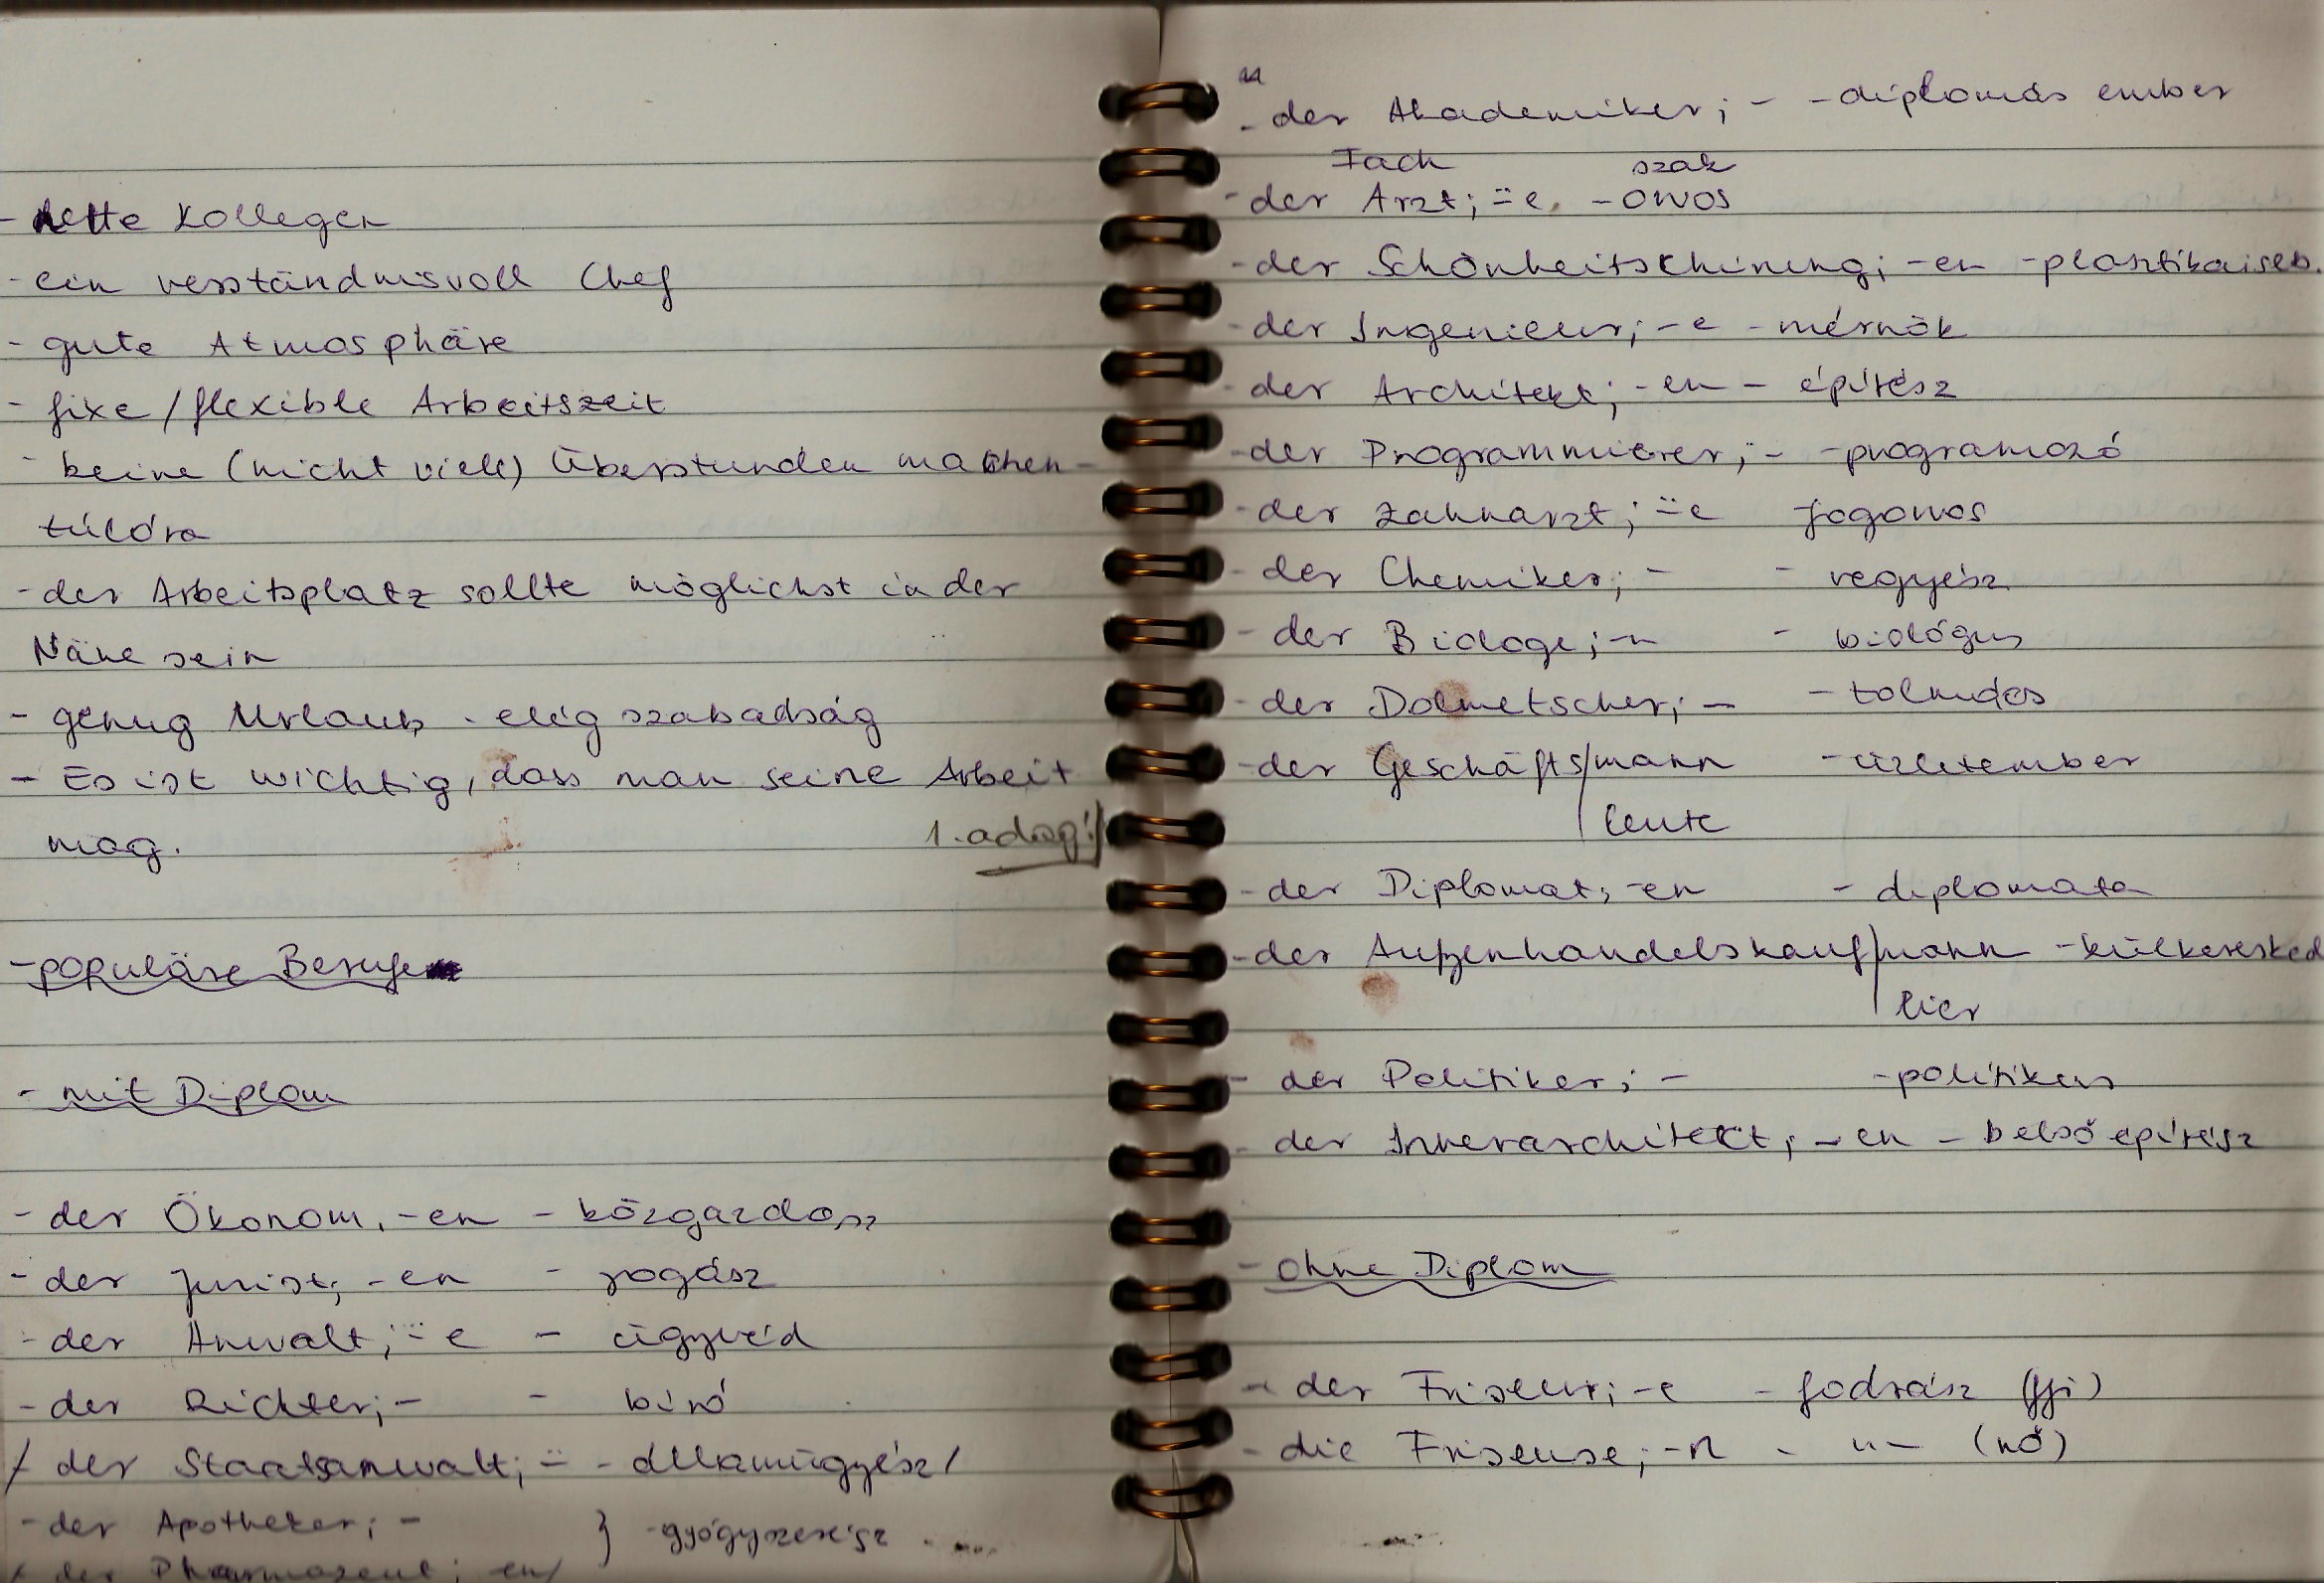 - nette Kollegen
- ein verständnisvoll Chef
- gute Atmosphäre
- fixe / flexible Arbeitszeit
- keine (nicht viele) Überstunden machen -
túlóra
- der Arbeitsplatz sollte möglichst in der
Nähe sein
- genug Urlaub - elég szabadság
- Es ist wichtig, dass man seine Arbeit
mag.
1. adag!
- populäre Berufe
- mit Diplom
- der Ökonom, -en - közgazdász
- der Jurist; -en - jogász
- der Anwalt; ¨-e - ügyvéd
- der Richter; - - bíró
/ der Staatsanwalt; ¨- - államügyész /
- der Apotheker; - } - gyógyszerész
/ der Pharmazeut; en /
- der Akademiker; - - diplomás ember
Fach szak
- der Arzt; ¨-e, - orvos
- der Schönheitschirurg; -en - plasztikai seb.
- der Ingenieur; -e - mérnök
- der Architekt; -en - építész
- der Programmierer; - - programozó
- der Zahnarzt; ¨-e fogorvos
- der Chemiker; - - vegyész
- der Biologe; -n - biológus
- der Dolmetscher; - - tolmács
- der Geschäfts/mann - üzletember
/ leute
- der Diplomat; -en - diplomata
- der Außenhandelskauf/mann - külkeresked
/ leer
- der Politiker; - - politikus
- der Innerarchitekt; -en - belső építész
- ohne Diplom
- der Friseur; -e - fodrász (ffi)
- die Friseuse; -n - -"- (nő)